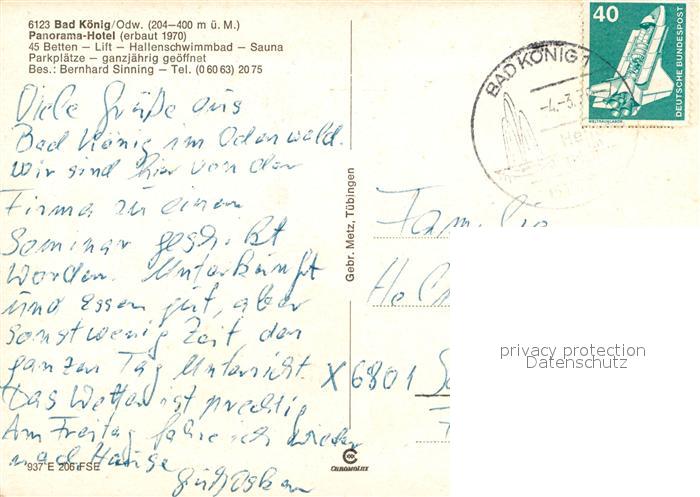 6123 Bad König/Odw. (204–400 m ü. M.)
Panorama-Hotel (erbaut 1970)
45 Betten – Lift – Hallenschwimmbad – Sauna
Parkplätze – ganzjährig geöffnet
Bes.: Bernhard Sinning – Tel. (0 60 63) 20 75
Viele Grüße aus
Bad König im Odenwald.
Wir sind hier von der
Firma zu einem
Seminar geschickt
worden. Unterkunft
und Essen gut, aber
sonst wenig Zeit den
ganzen Tag Unterricht.
Das Wetter ist prechtig
Am Freitag fahre ich wieder
nach Hause
937 E 206 FSE
Gebr. Metz, Tübingen
CHROMOLUX
BAD KÖNIG 1
-4.-3.
40
DEUTSCHE BUNDESPOST
WELTRAUMLABOR
Familie
X 6801
privacy protection
Datenschutz